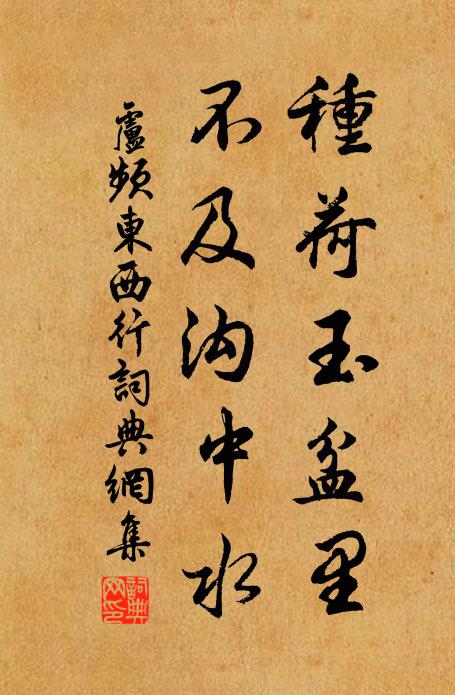 種荷玉盆里
不及沟中水
盧頻東西行詞典網集
詞典网印